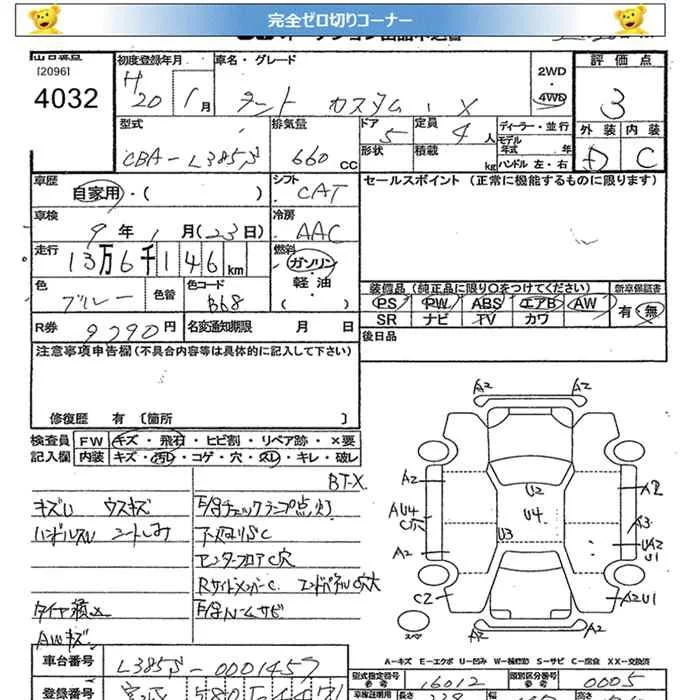 完全ゼロ切りコーナー
[2096]
4032
初度登録年月
H 20 年 1 月
車名・グレード
タント カスタム・X
2WD
4WD
評価点
3
外装 内装
D C
型式
CBA-L385S
排気量
660 CC
ドア
5
形状
定員
4 人
積載
kg
ディーラー・並行
モデル年式 年
ハンドル 左・右
車歴
自家用・( )
シフト
CAT
セールスポイント (正常に機能するものに限ります)
車検
9 年 1 月(23日)
冷房
AAC
走行
13万6千146km
燃料
ガソリン・
軽油・
( )
色
ブルー
色替
色コード
B68
装備品(純正品に限り○をつけてください)
PS PW ABS エアB AW
SR ナビ TV カワ
新車保証書
有・無
R券
9290円
名変通知期限 月 日
後日品
注意事項申告欄(不具合内容等は具体的に記入して下さい)
修復歴 有 〔箇所 〕
検査員記入欄
FW キズ・飛石・ヒビ割・リペア跡・×要
内装 キズ・汚レ・コゲ・穴・スレ・キレ・破レ
BT-X
キズU ウスキズ
ハンドルスレ シートしみ
エンジンチェックランプ点灯
センターフロアC穴
RサイドメンバーC エンドパネルC穴大
AWキズ
A2 A2
A2
AU4
A2
C2
U2
U4
U3
A2
A3
UA2
U1
A2U1
A2 A2
A-キズ E-エクボ U-凹み W-補修跡 S-サビ C-腐食 XX-交換済
車台番号
L385S-0001457
型式指定番号
16012
類別区分番号
0005
登録番号
長さ